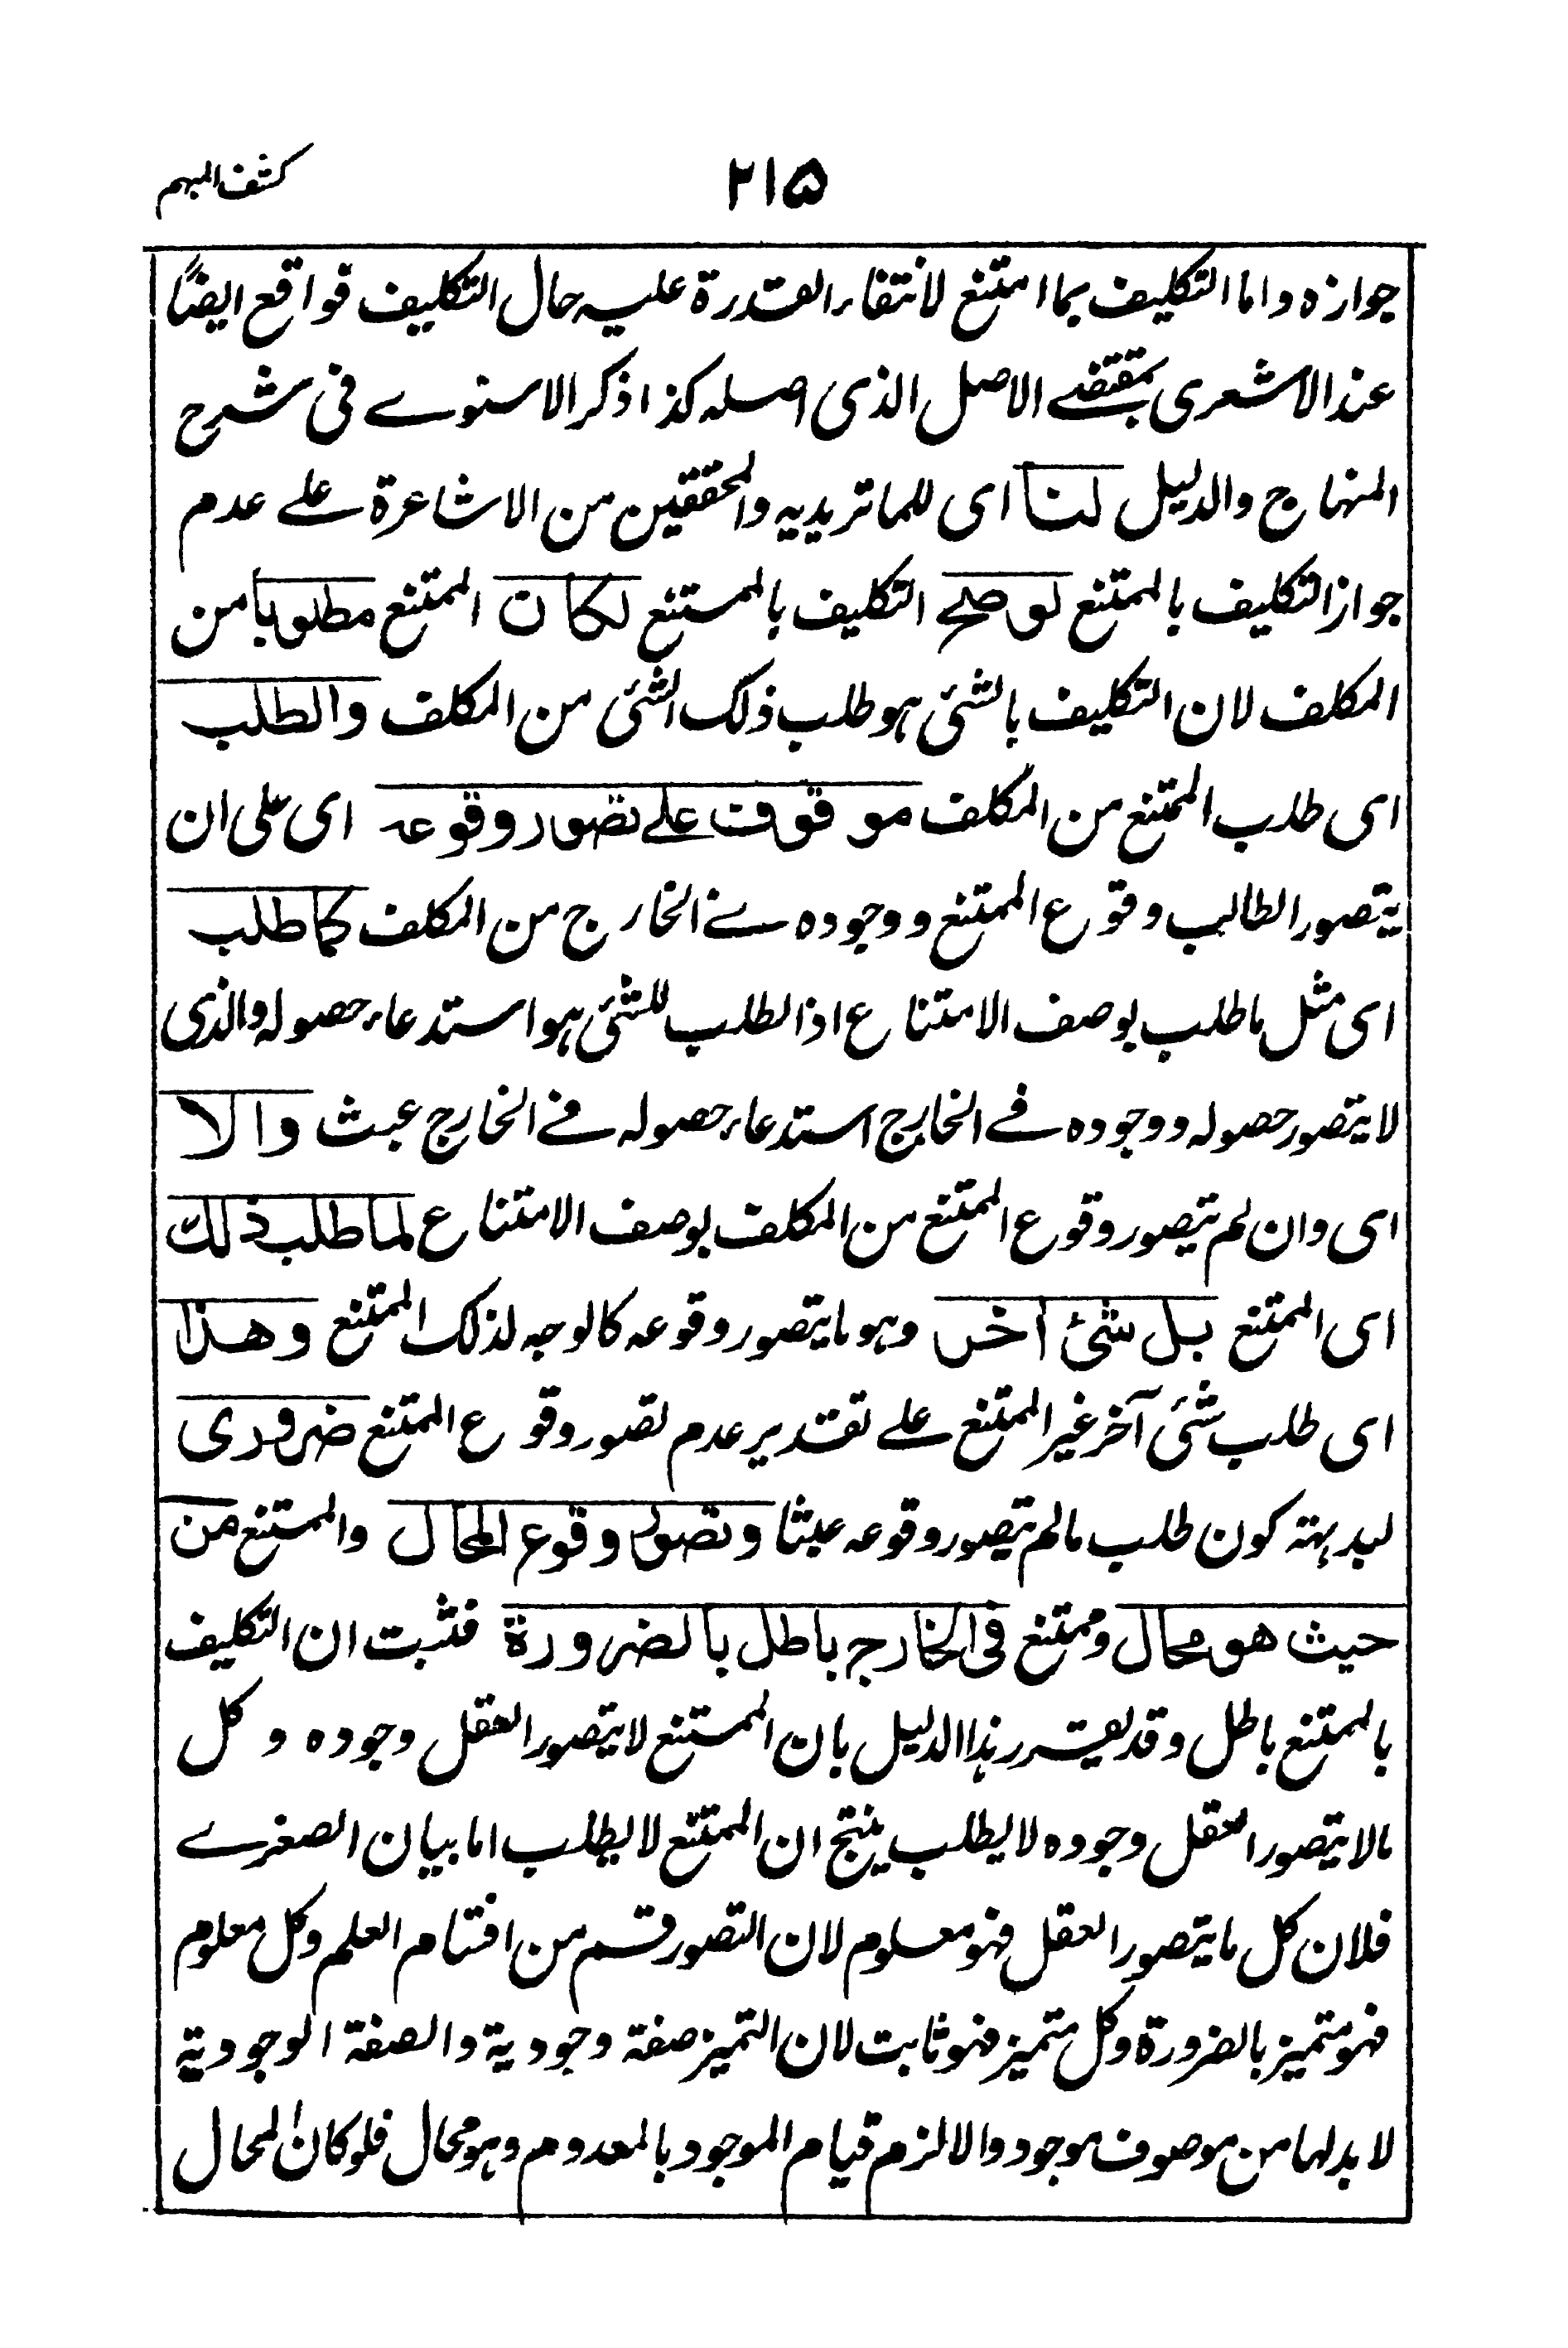 كشف المبهم
٢١٥
جوازه واما التكليف بما امتنع لانتفاء القدرة عليه حال التكليف فواقع ايضًا
عند الاشعرى بمقتضے الاصل الذى اصله كذا ذكر الاسنوے فى شرح
المنهاج والدليل لنا اى للماتريديه والمحققين من الاشاعرة علے عدم
جواز التكليف بالممتنع لو صح التكليف بالممتنع لكان الممتنع مطلوبا من
المكلف لان التكليف بالشئى هو طلب ذلك الشئى من المكلف والطلب
اى طلب الممتنع من المكلف موقوف علے تصور وقوعه اى على ان
يتصور الطالب وقوع الممتنع ووجوده فے الخارج من المكلف كما طلب
اى مثل ما طلب بوصف الامتناع اذ الطلب للشئى هو استدعاء حصوله والذى
لا يتصور حصوله ووجوده فے الخارج استدعاء حصوله فے الخارج عبث والا
اى وان لم يتصور وقوع الممتنع من المكلف بوصف الامتناع لما طلب ذلك
اى الممتنع بل شئ آخر وهو ما يتصور وقوعه كالوجه لذلك الممتنع وهذا
اى طلب شئى آخر غير الممتنع علے تقدير عدم تصور وقوع الممتنع ضرورى
لبديهة كون طلب مالم يتصور وقوعه عبثا وتصور وقوع المحال والممتنع من
حيث هو محال وممتنع فى الخارج باطل بالضرورة فثبت ان التكليف
بالممتنع باطل وقد يقرر هذا الدليل بان الممتنع لا يتصور العقل وجوده وكل
مالا يتصور العقل وجوده لا يطلب ينتج ان الممتنع لا يطلب اما بيان الصغرے
فلان كل ما يتصور العقل فهو معلوم لان التصور قسم من اقسام العلم وكل معلوم
فهو متميز بالضرورة وكل متميز فهو ثابت لان التميز صفة وجودية والصفة الوجودية
لا بد لها من موصوف موجود والا لزم قيام الموجود بالمعدوم وهو محال فلو كان المحال